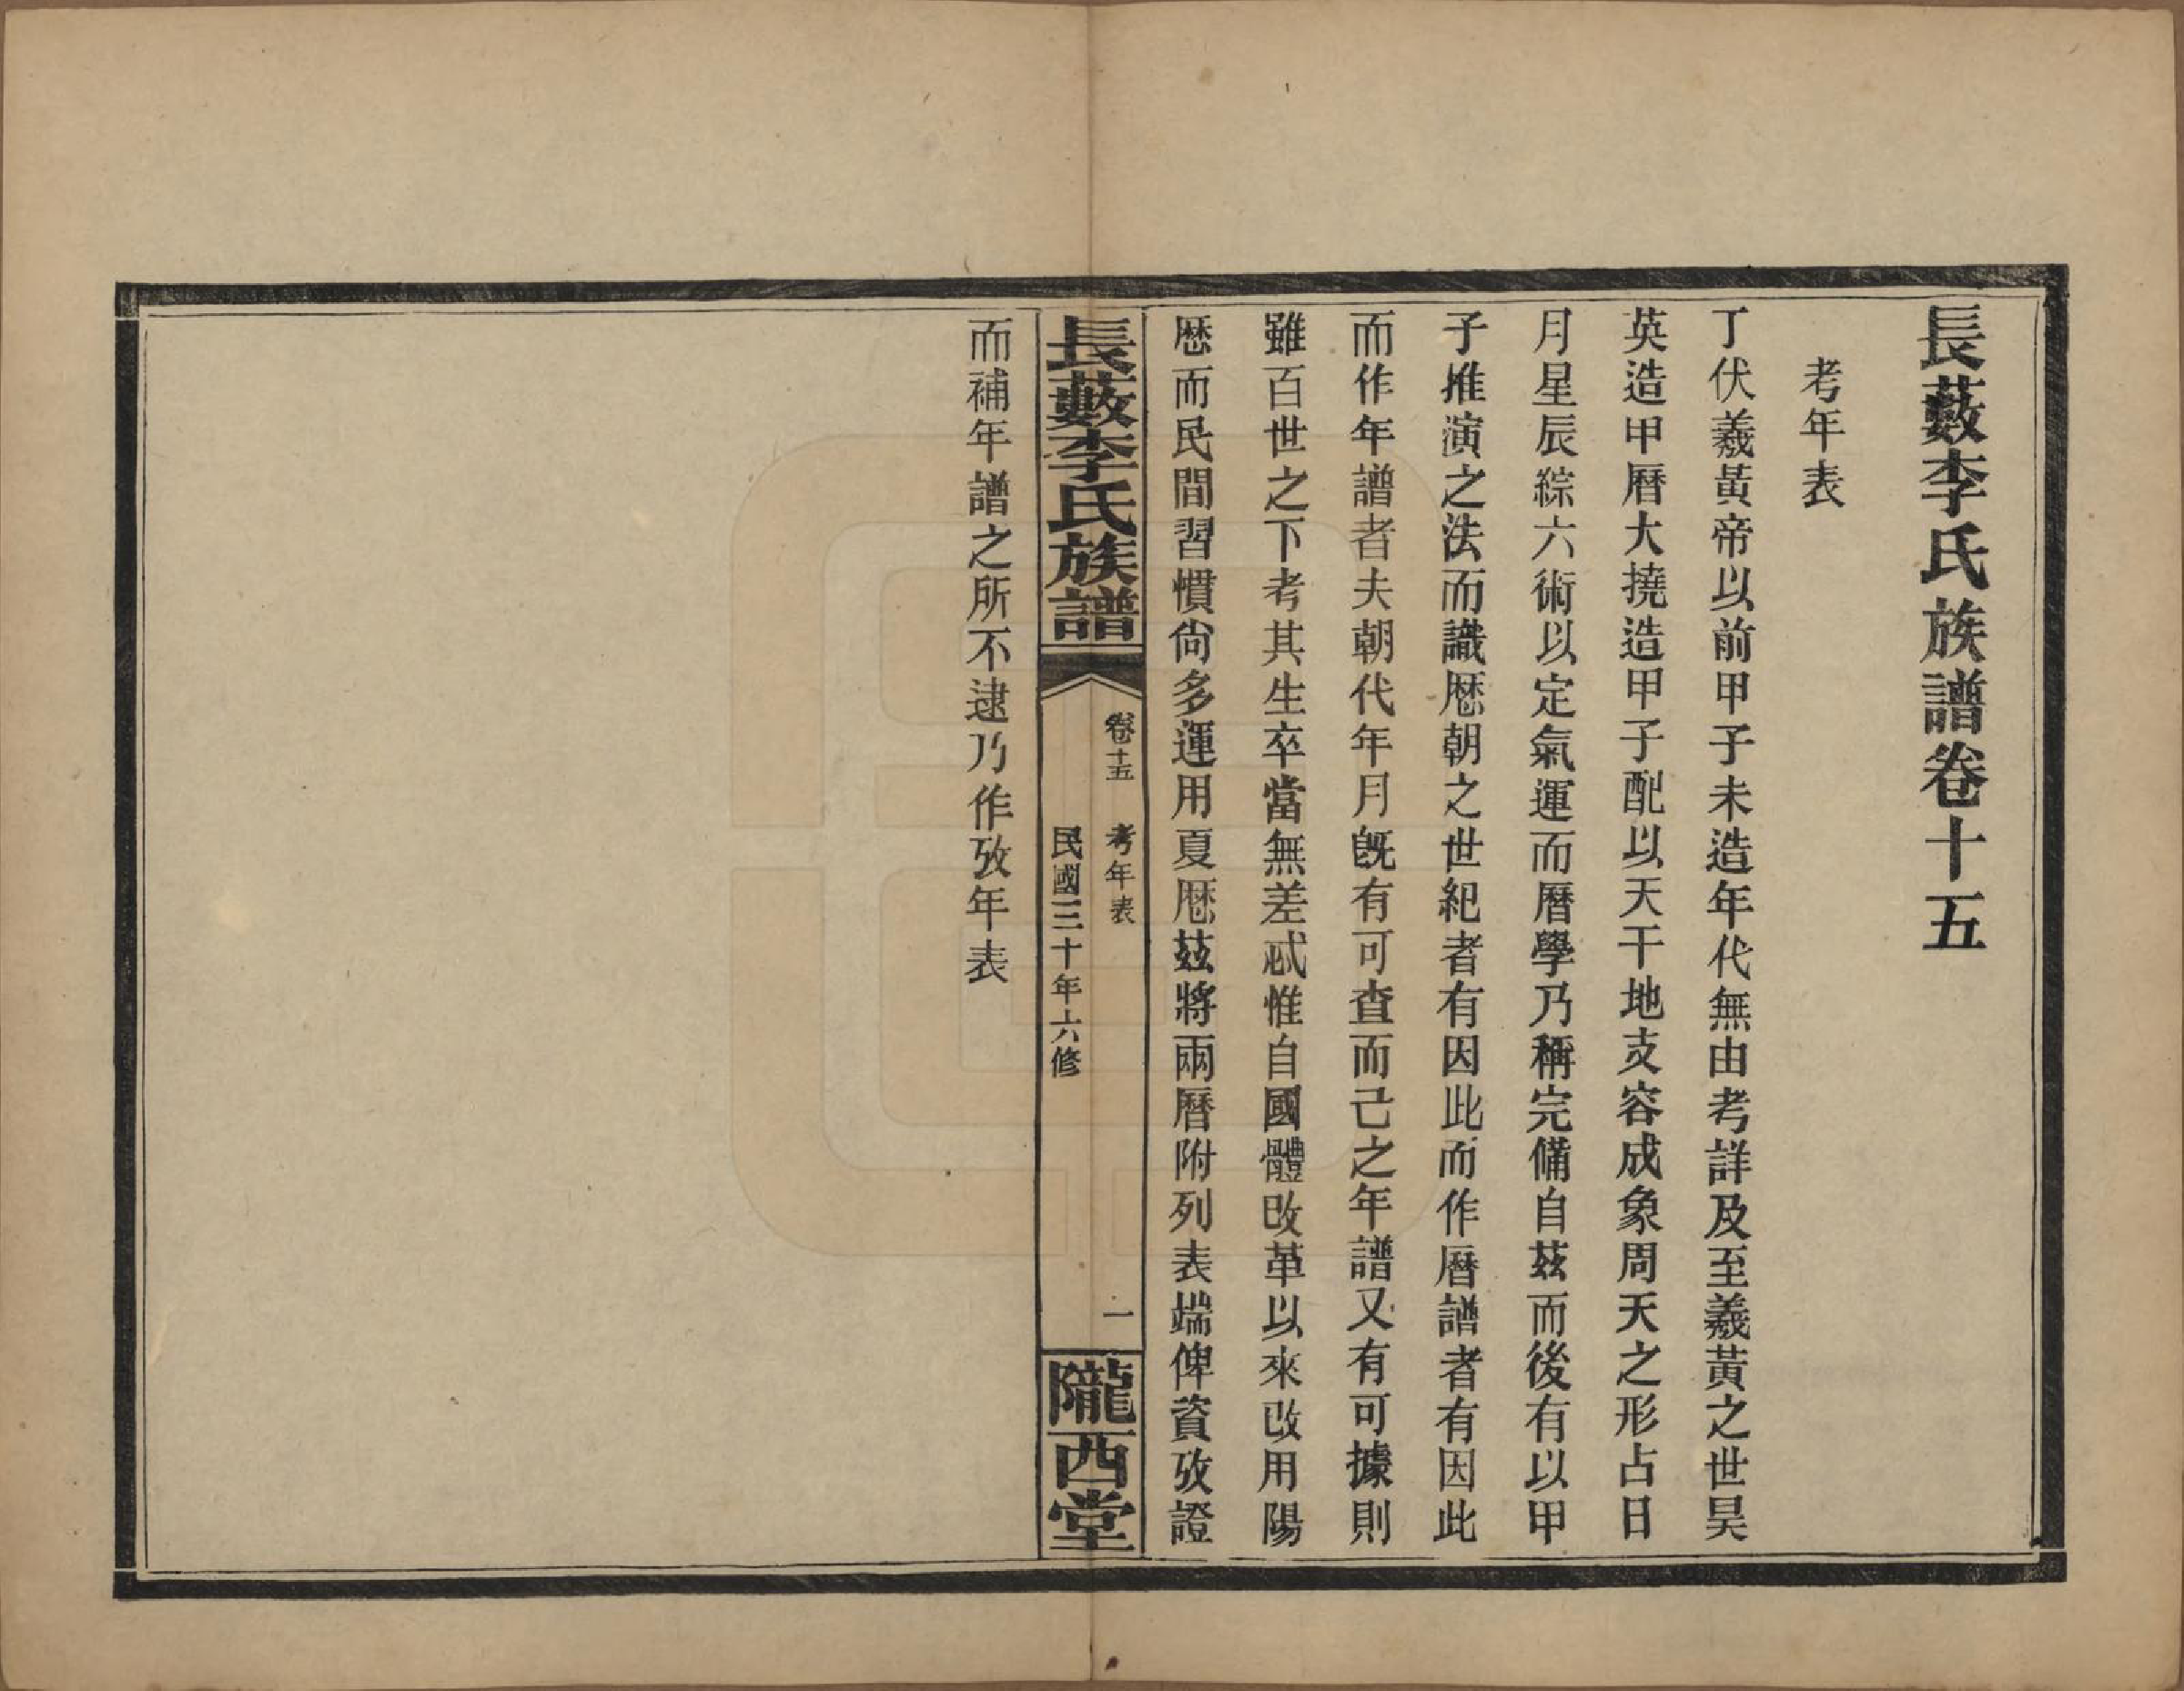 長藪李氏族譜卷十五
考年表
丁伏羲黃帝以前甲子未造年代無由考詳及至羲黃之世昊
英造甲曆大撓造甲子配以天干地支容成象周天之形占日
月星辰綜六術以定氣運而曆學乃稱完備自茲而後有以甲
子推演之法而識歷朝之世紀者有因此而作曆譜者有因此
而作年譜者夫朝代年月旣有可查而己之年譜又有可據則
雖百世之下考其生卒當無差忒惟自國體改革以來改用陽
歷而民間習慣尙多運用夏歷茲將兩曆附列表端俾資攷證
長藪李氏族譜
卷十五 考年表 一
民國三十年六修
隴西堂
而補年譜之所不逮乃作攷年表